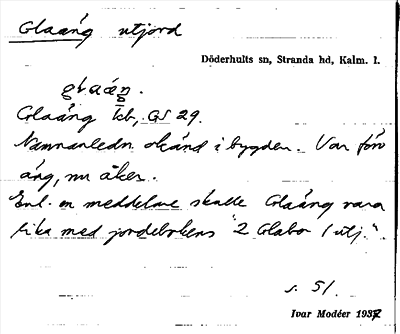 Glaäng utjord
Döderhults sn, Stranda hd, Kalm. l.
Glaäng Ek, GS 29.
Namnanledn. okänd i bygden. Var förr
äng, nu åker.
Enl. en meddelare skulle Glaäng vara
lika med jordebokens "2 Glabo 1 utj.".
s. 51.
Ivar Modéer 1937